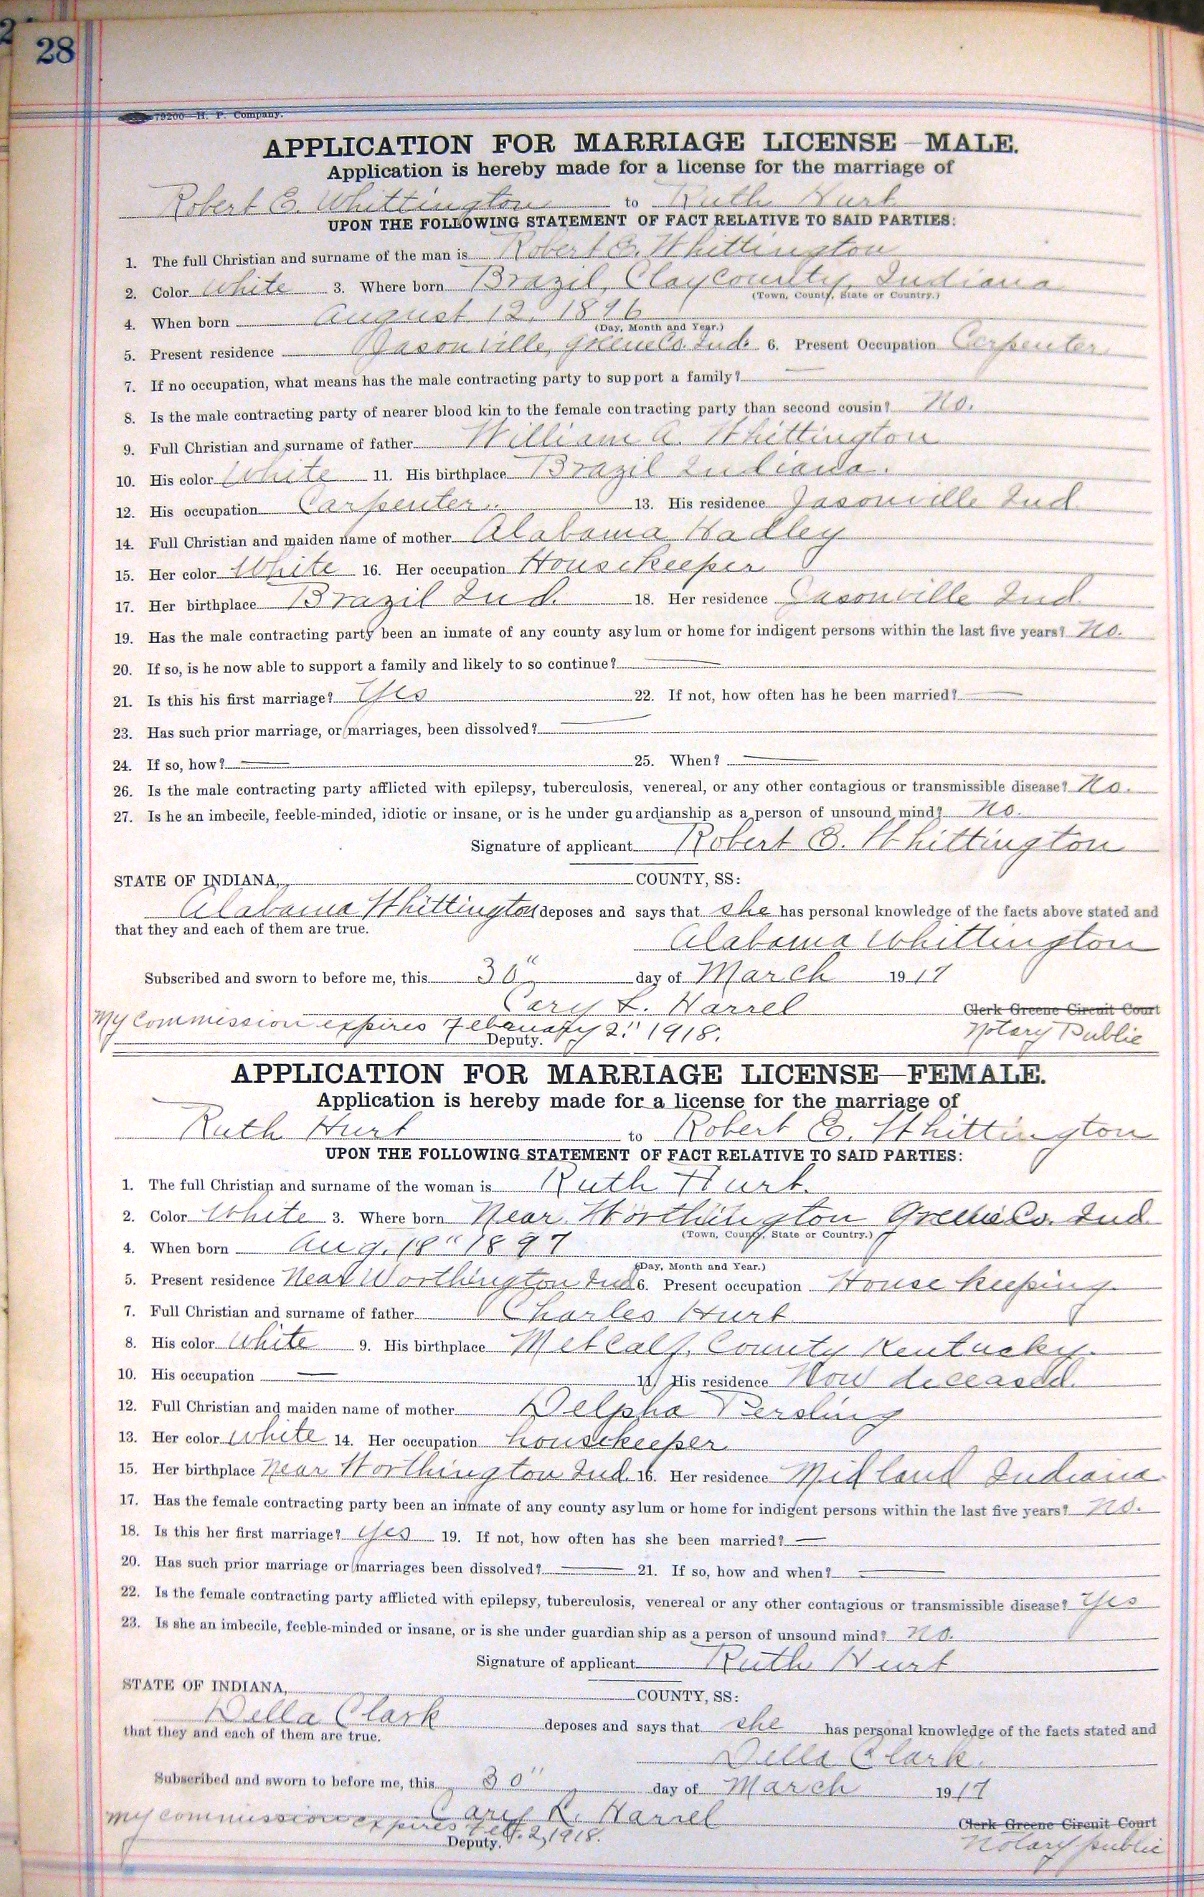 28
79200—H. P. Company.
APPLICATION FOR MARRIAGE LICENSE—MALE.
Application is hereby made for a license for the marriage of
Robert E. Whittington to Ruth Hurt
UPON THE FOLLOWING STATEMENT OF FACT RELATIVE TO SAID PARTIES:
1. The full Christian and surname of the man is Robert E. Whittington
2. Color White 3. Where born Brazil, Clay county, Indiana
(Town, County, State or Country.)
4. When born August 12, 1896
(Day, Month and Year.)
5. Present residence Jasonville, Greene Co. Ind. 6. Present Occupation Carpenter
7. If no occupation, what means has the male contracting party to support a family? —
8. Is the male contracting party of nearer blood kin to the female contracting party than second cousin? No.
9. Full Christian and surname of father William A. Whittington
10. His color White 11. His birthplace Brazil Indiana.
12. His occupation Carpenter 13. His residence Jasonville Ind
14. Full Christian and maiden name of mother Alabama Hadley
15. Her color White 16. Her occupation Housekeeper
17. Her birthplace Brazil Ind. 18. Her residence Jasonville Ind
19. Has the male contracting party been an inmate of any county asylum or home for indigent persons within the last five years? No.
20. If so, is he now able to support a family and likely to so continue? —
21. Is this his first marriage? Yes 22. If not, how often has he been married? —
23. Has such prior marriage, or marriages, been dissolved? —
24. If so, how? — 25. When? —
26. Is the male contracting party afflicted with epilepsy, tuberculosis, venereal, or any other contagious or transmissible disease? No.
27. Is he an imbecile, feeble-minded, idiotic or insane, or is he under guardianship as a person of unsound mind? no.
Signature of applicant Robert E. Whittington
STATE OF INDIANA, COUNTY, SS:
Alabama Whittington deposes and says that she has personal knowledge of the facts above stated and
that they and each of them are true.
Alabama Whittington
Subscribed and sworn to before me, this 30" day of March 1917
Cary L. Harrel Clerk Greene Circuit Court
My commission expires February 2" 1918. Notary Public
Deputy.
APPLICATION FOR MARRIAGE LICENSE—FEMALE.
Application is hereby made for a license for the marriage of
Ruth Hurt to Robert E. Whittington
UPON THE FOLLOWING STATEMENT OF FACT RELATIVE TO SAID PARTIES:
1. The full Christian and surname of the woman is Ruth Hurt.
2. Color White 3. Where born Near Worthington Greene Co. Ind.
(Town, County, State or Country.)
4. When born Aug. 18" 1897
(Day, Month and Year.)
5. Present residence Near Worthington Ind 6. Present occupation House keeping.
7. Full Christian and surname of father Charles Hurt
8. His color White 9. His birthplace Metcalf. County Kentucky.
10. His occupation — 11. His residence Now deceased.
12. Full Christian and maiden name of mother Delpha Persling
13. Her color White 14. Her occupation housekeeper
15. Her birthplace Near Worthington Ind. 16. Her residence Midland Indiana.
17. Has the female contracting party been an inmate of any county asylum or home for indigent persons within the last five years? no.
18. Is this her first marriage? yes 19. If not, how often has she been married? —
20. Has such prior marriage or marriages been dissolved? — 21. If so, how and when? —
22. Is the female contracting party afflicted with epilepsy, tuberculosis, venereal or any other contagious or transmissible disease? Yes
23. Is she an imbecile, feeble-minded or insane, or is she under guardianship as a person of unsound mind? no.
Signature of applicant Ruth Hurt
STATE OF INDIANA, COUNTY, SS:
Della Clark deposes and says that she has personal knowledge of the facts stated and
that they and each of them are true.
Della Clark.
Subscribed and sworn to before me, this 30" day of March 1917
Cary L. Harrel Clerk Greene Circuit Court
My commission expires Feb. 2, 1918. Notary public
Deputy.